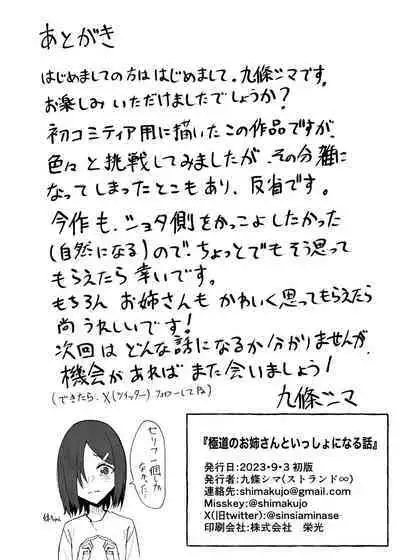 あとがき
はじめましての方は はじめまして。九條シマです。
お楽しみ いただけましたでしょうか?
初コミティア用に描いたこの作品ですが、
色々と挑戦してみましたが、その分雑に
なってしまったとこもあり、反省です。
今作も、ショタ側をかっこよしたかった
(自然になる)ので、ちょっとでも そう思って
もらえたら幸いです。
もちろん お姉さんも かわいく思ってもらえたら
尚 うれしいです!
次回は どんな話になるか分かりませんが、
機会があれば また会いましょう!
(できたら、X(ツイッター) フォローして下さい)
九條シマ
セリフ一個しか
なかった…
妹ちゃん
『極道のお姉さんといっしょになる話』
発行日:2023・9・3 初版
発行者:九條シマ(ストランド∞)
連絡先:shimakujo@gmail.com
Misskey:@shimakujo
X(旧twitter):@sinsiaminase
印刷会社:株式会社 栄光